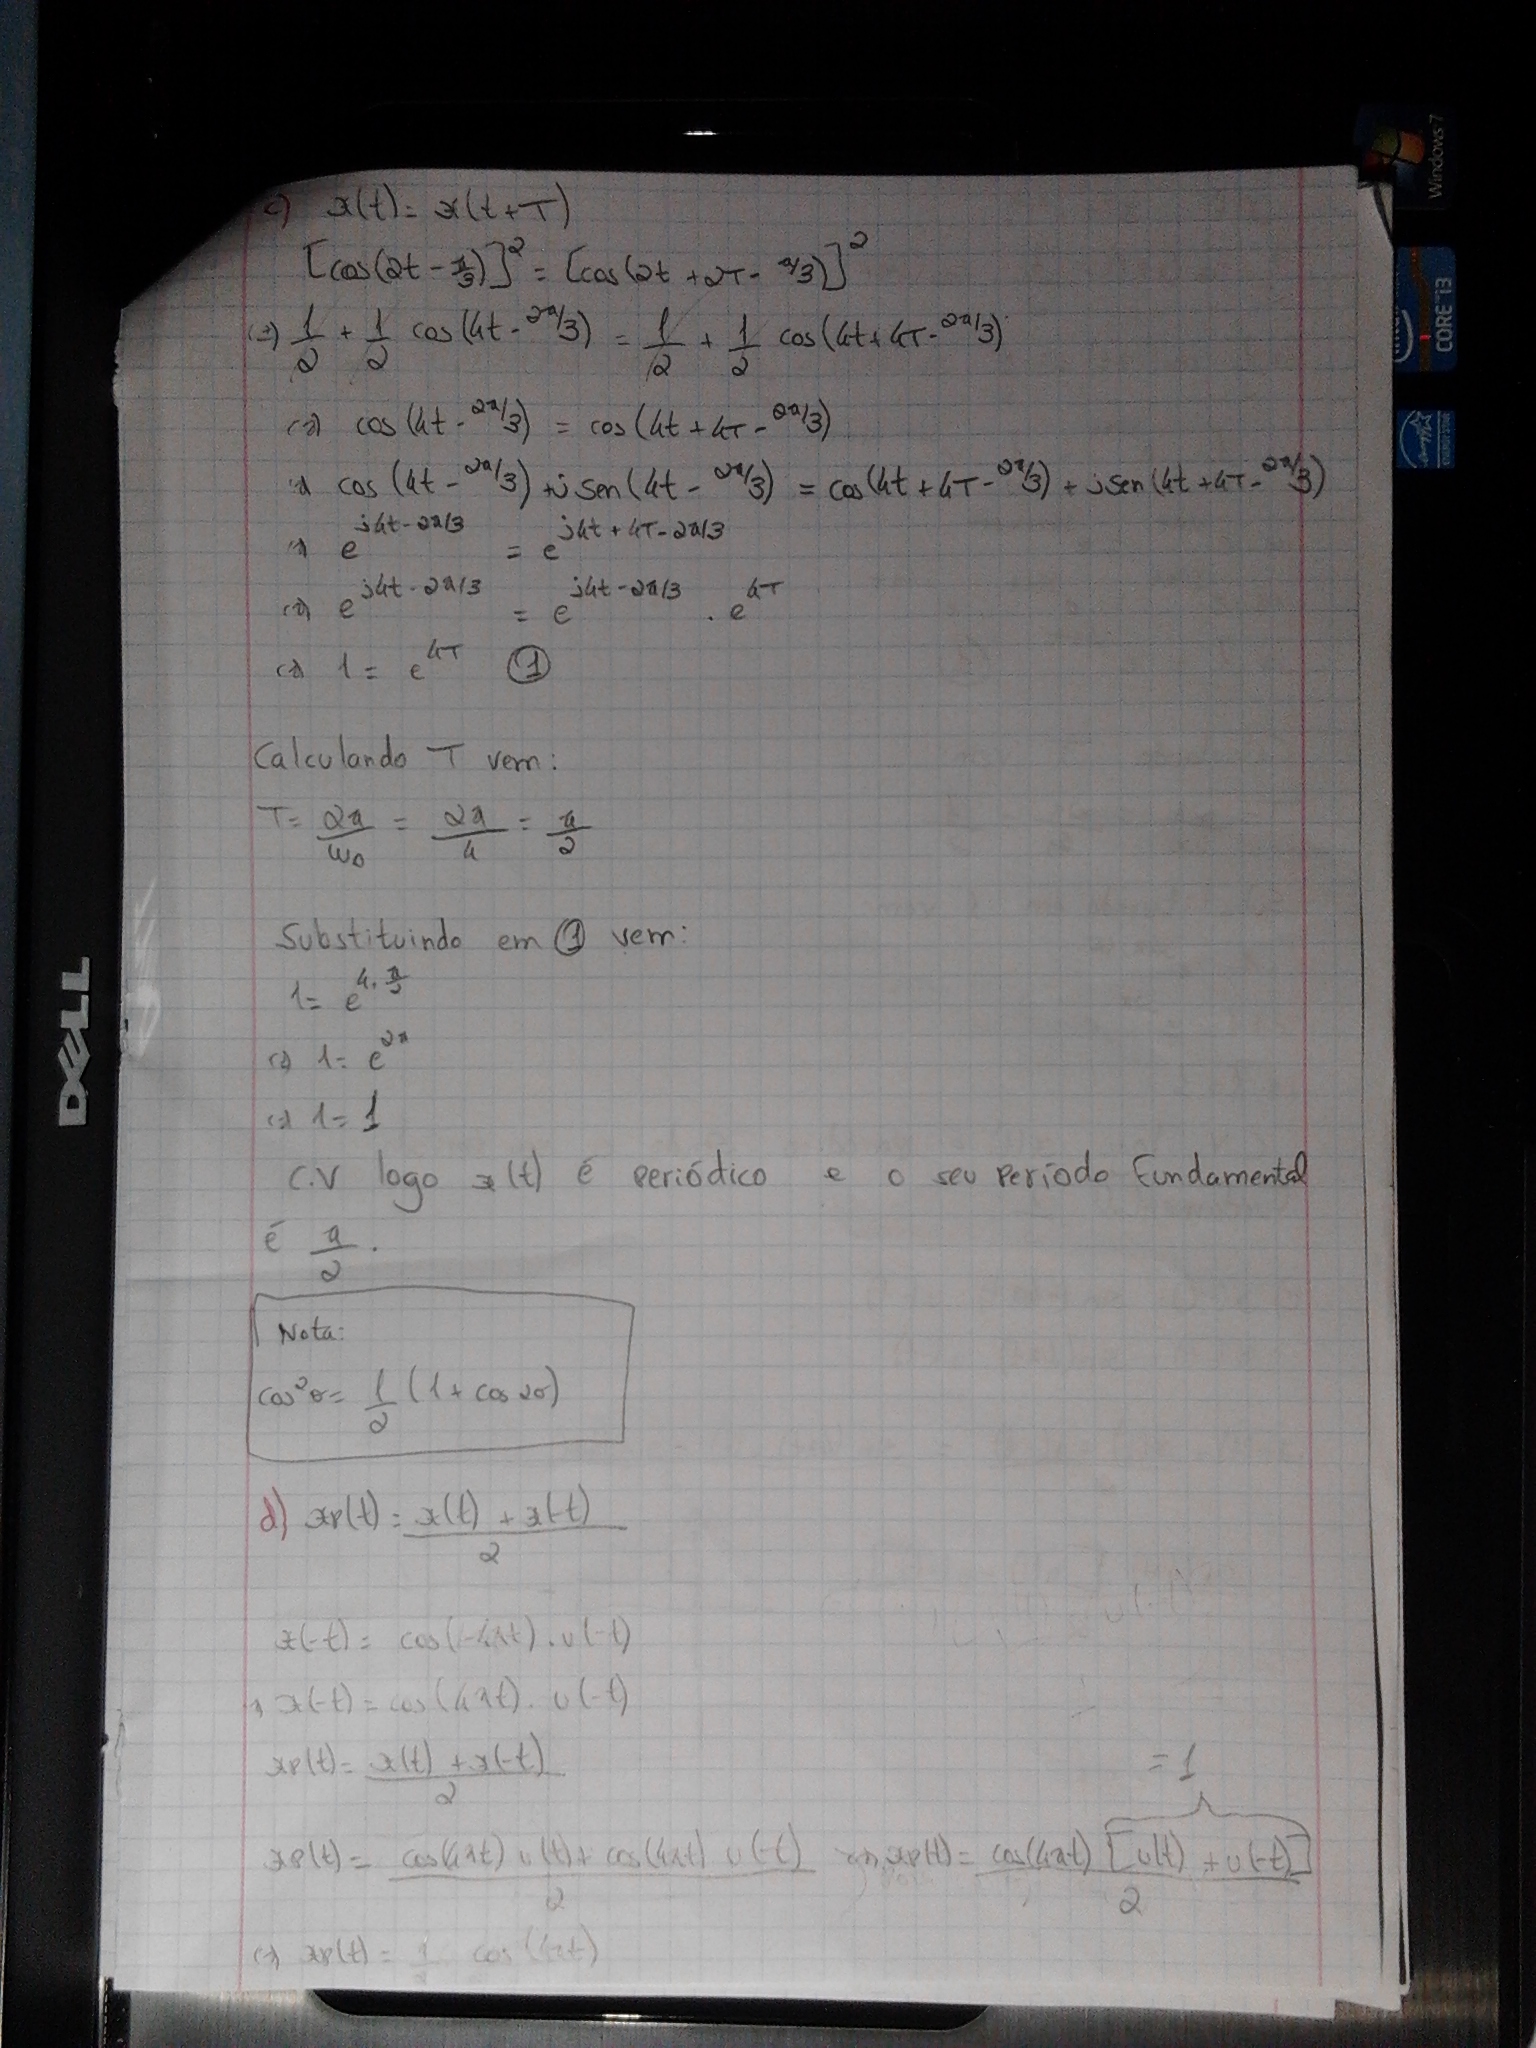 c) x(t) = x(t+T)
[cos(2t - π/3)]² = [cos(2t + 2T - π/3)]²
(=) 1/2 + 1/2 cos(4t - 2π/3) = 1/2 + 1/2 cos(4t + 4T - 2π/3)
(=) cos(4t - 2π/3) = cos(4t + 4T - 2π/3)
(=) cos(4t - 2π/3) + j sen(4t - 2π/3) = cos(4t + 4T - 2π/3) + j sen(4t + 4T - 2π/3)
(=) e^(j4t - 2π/3) = e^(j4t + 4T - 2π/3)
(=) e^(j4t - 2π/3) = e^(j4t - 2π/3) . e^(4T)
(=) 1 = e^(4T) ①
Calculando T vem:
T = 2π/ω0 = 2π/4 = π/2
Substituindo em ① vem:
1 = e^(4.π/2)
(=) 1 = e^(2π)
(=) 1 = 1
C.V logo x(t) é periódico e o seu período fundamental
é π/2.
Nota:
cos²θ = 1/2 (1 + cos 2θ)
d) xp(t) = (x(t) + x(-t))/2
x(-t) = cos(-4πt) . u(-t)
(=) x(-t) = cos(4πt) . u(-t)
xp(t) = (x(t) + x(-t))/2
= 1
xp(t) = (cos(4πt) u(t) + cos(4πt) u(-t))/2 (=) xp(t) = (cos(4πt) [u(t) + u(-t)])/2
(=) xp(t) = 1/2 cos(4πt)
DELL
Windows 7
CORE i3
ENERGY STAR